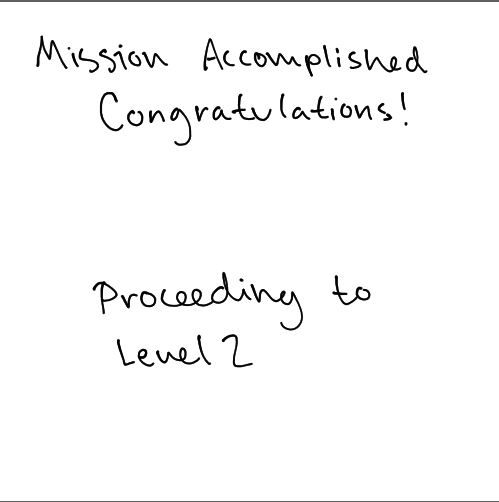 Mission Accomplished
Congratulations!
Proceeding to
Level 2